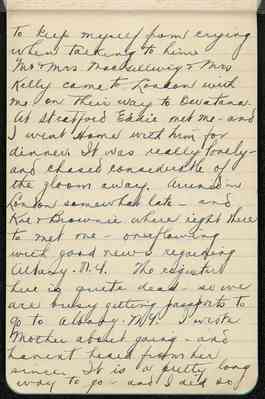 to keep myself from crying
when talking to him.
Mr & Mrs MacGillivig & Mrs
Kelly came to London with
me on their way to Owatana.
At Stratford Eddie met me - and
I went Home with him for
dinner. It was really lovely -
and chased considerable of
the gloom away. Arrived in
London somewhat late - and
Kit & Brownie where right there
to met me - overflowing
with good news regarding
Albany. N.Y. The register
here is quite dead - so we
are busy getting passports to
go to Albany. N.Y. I wrote
Mother about going - and
havent heard from her
since. It is a pretty long
way to go - and I did so